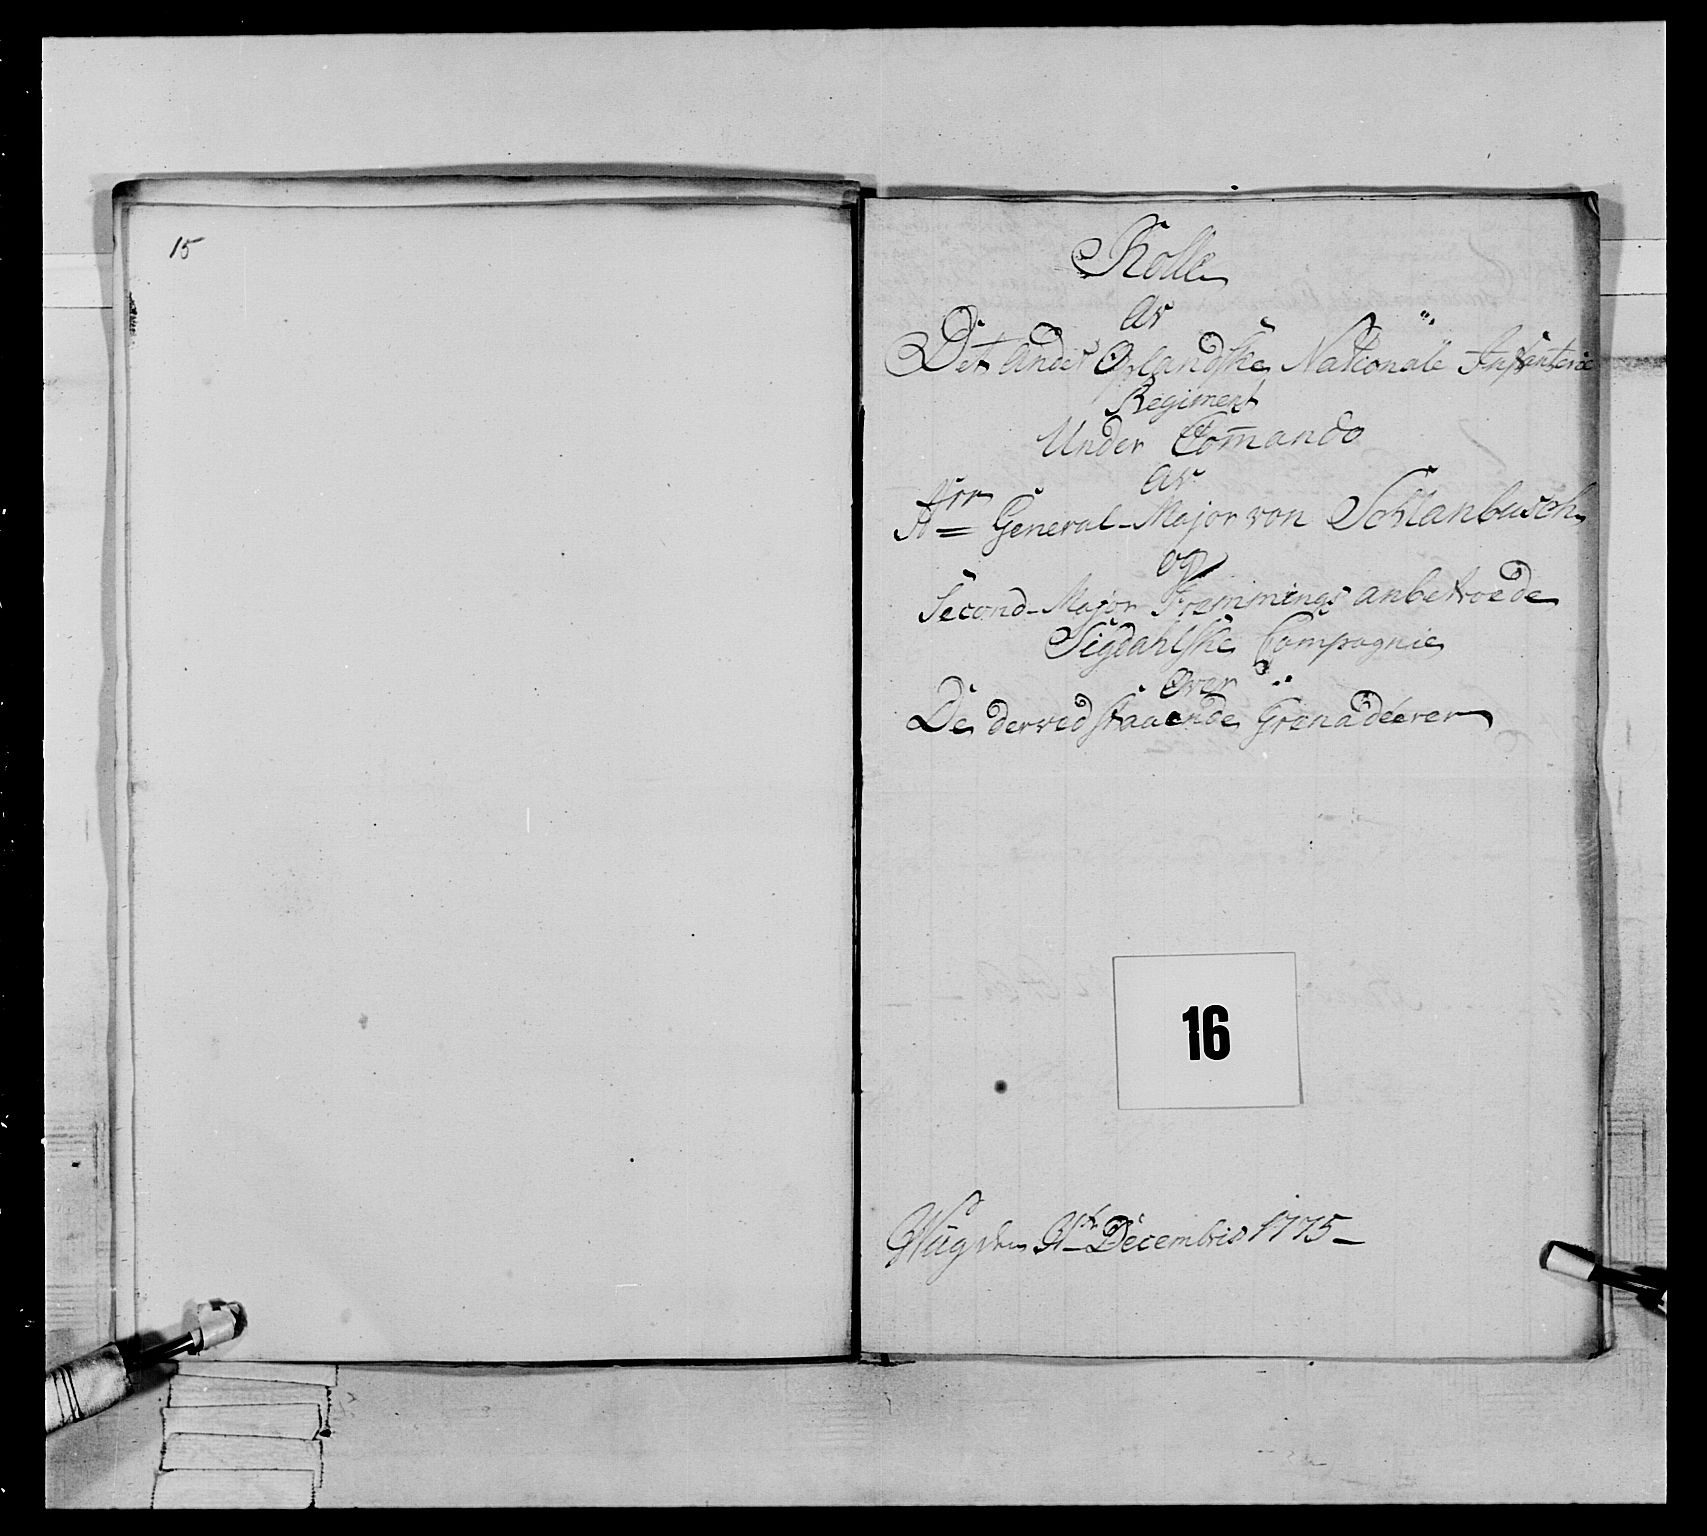 15
Rolle
av
Det Andet Oplandske Nationale Infanterie
Regiment
Under Com̄ando
av
Hrr General-Major von Schlanbusch
og
Second-Major Fremmings anbetroede
Sigdahlske Compagnie
Over
De derved staaende Grenadéerer
den 31te Decembris 1775
16